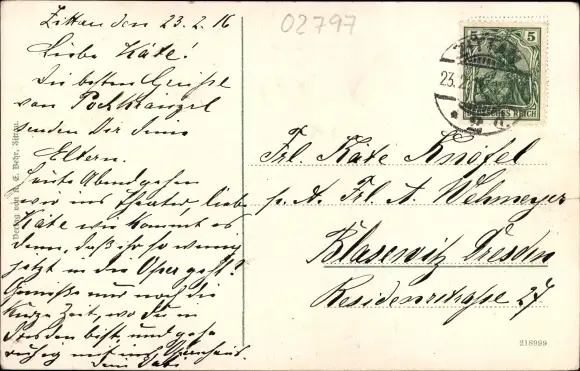 Zittau den 23.2.16
Liebe Käte!
Die besten Grüße
von
senden Dir Deine
Eltern.
Heute Abend gehen
wir ins Theater, liebe
Käte wie kommt es
denn, daß ihr so wenig
jetzt in die Oper geht?
nur noch die
kurze Zeit, wo Du in
Dresden bist, und gehe
ruhig mit
Dein Papa
02797
5 5
DEUTSCHES REICH
23.2
Frl. Käte Knöfel
p. A. Frl. A. Wehmeyer
Blasewitz Dresden
Residenzstraße 27
Verlag von R. E. Behr, Zittau.
218999